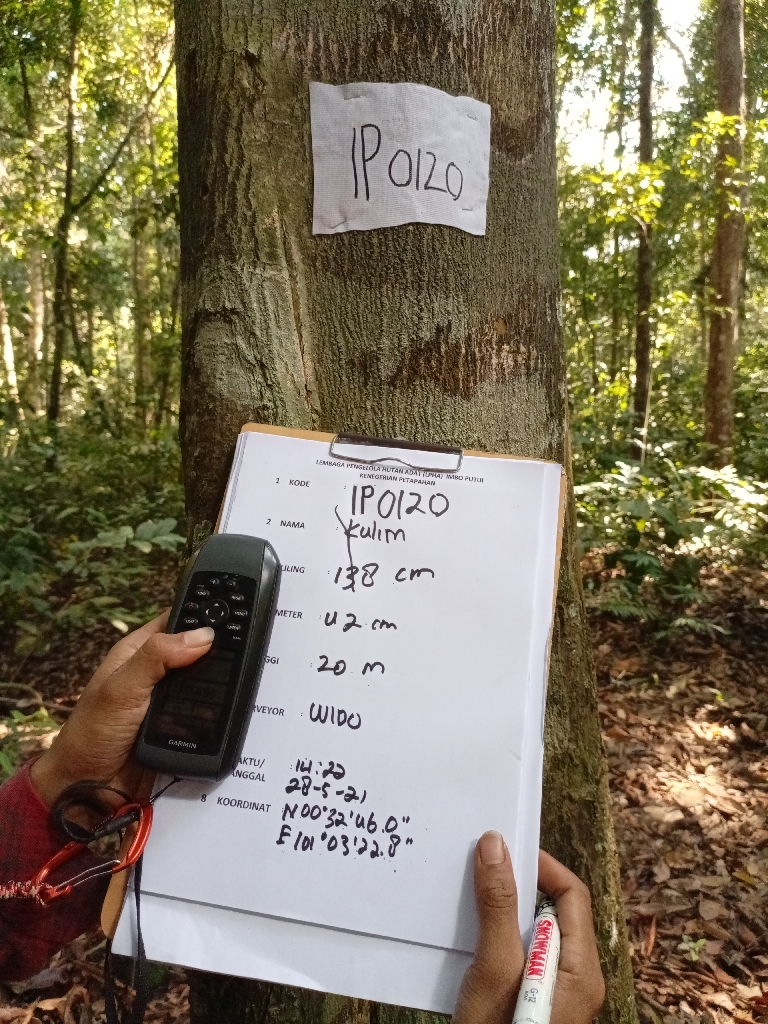 IP0120
LEMBAGA PENGELOLA HUTAN ADAT (LPHA) IMBO PUTUI
KENEGERIAN PETAPAHAN
1 KODE : IP0120
2 NAMA : Kulim
LILING : 138 cm
METER : 42 cm
GGI : 20 m
RVEYOR : WIDO
AKTU/ : 14:22
ANGGAL 28-5-21
8 KOORDINAT N00°32'46.0"
E101°03'22.8"
GARMIN
SNOWMAN
G-12